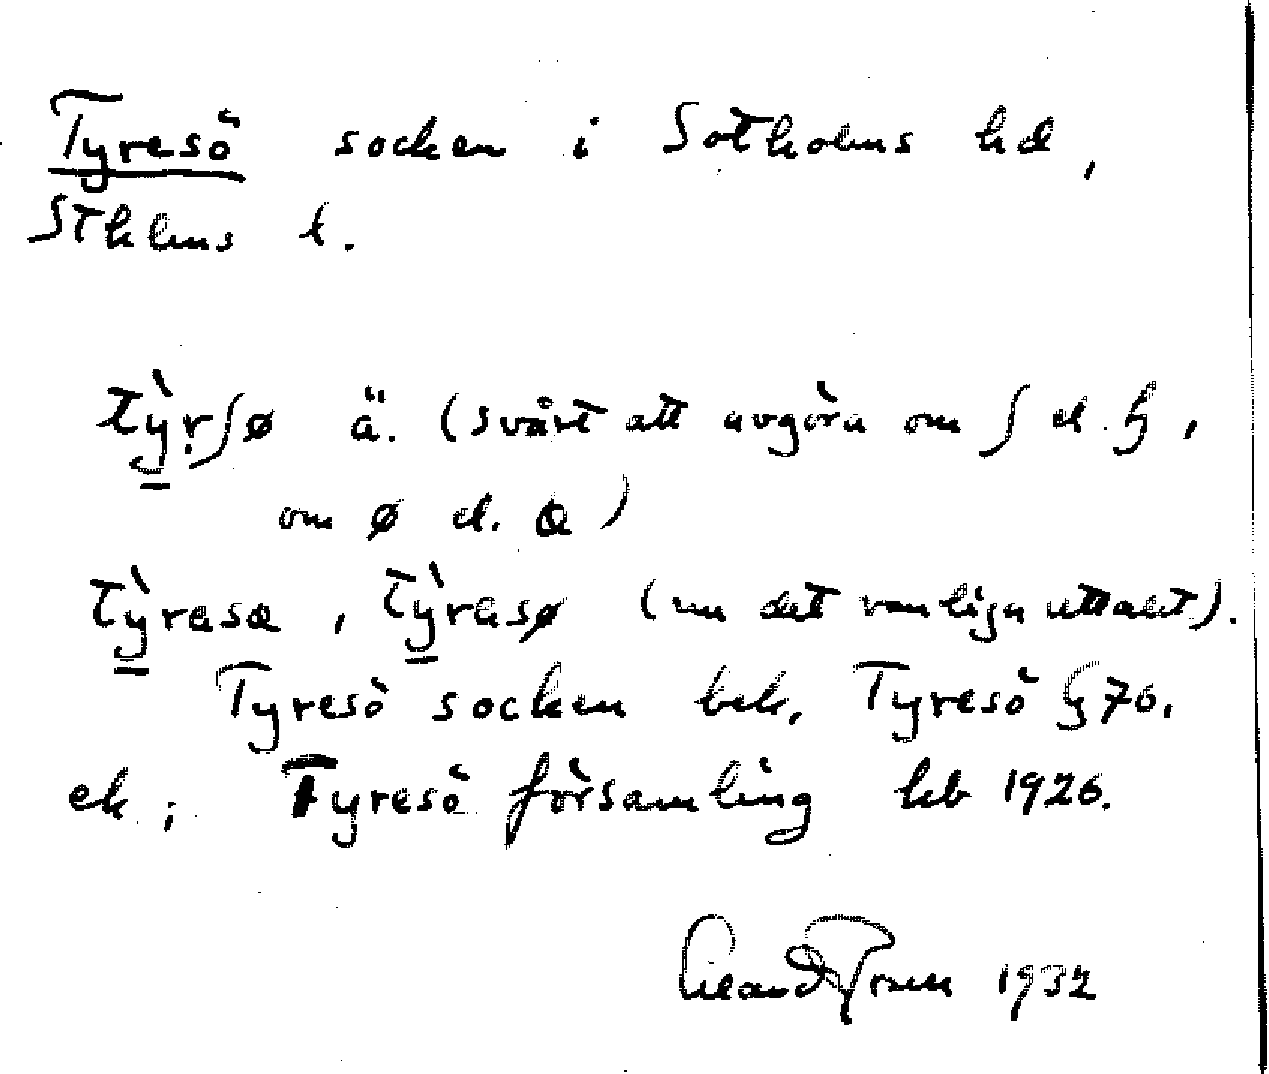 Tyresö socken i Sotholms hd,
Sthlms l.
tỳ̠rʃø ä. (svårt att avgöra om ʃ el. ꞩ,
om ø el. ꝺ)
tỳ̠rəsɷ, tỳ̠rəsø (nu det vanliga uttalet).
Tyresö socken bek. Tyresö 76.
ek; Tyresö församling kb 1926.
1932